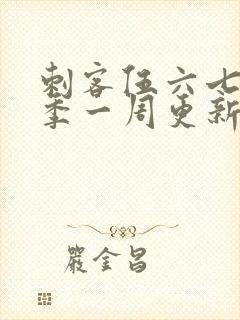 刺客伍六七
季一周更新
嚴金昌